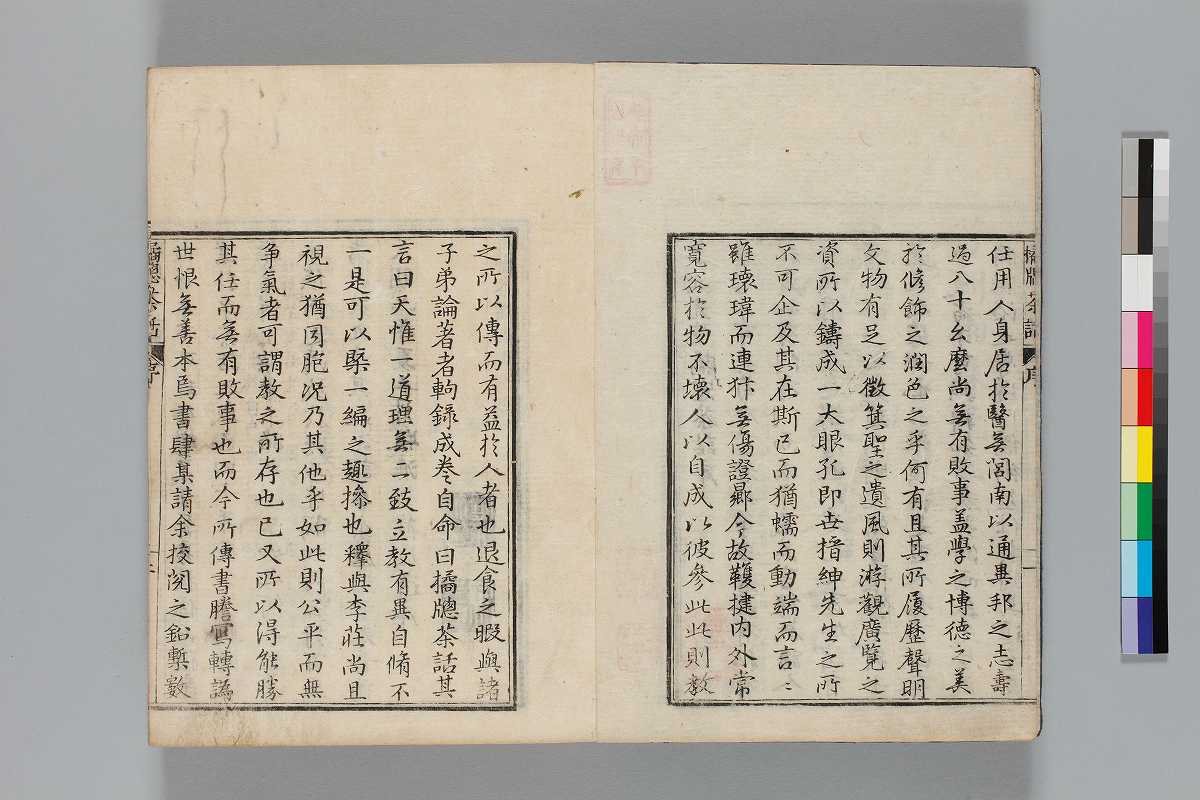 橘牕茶話 序
任用人身居於醫無閭南以通異邦之志壽
過八十幺麼尚無有敗事盖學之博德之美
於修飾之潤色之乎何有且其所履歷聲明
文物有足以徵箕聖之遺風則游觀廣覽之
資所以鑄成一大眼孔即世搢紳先生之所
不可企及其在斯已而猶蠕而動端而言〻
雖瓌瑋而連犿無傷證曏今故韄揵内外常
寬容於物不壞人以自成以彼參此則教
之所以傳而有益於人者也退食之暇與諸
子弟論著者輙錄成卷自命曰橘牕茶話其
言曰天惟一道理無二致立教有異自脩不
一是可以槩一編之趣操也釋與李莊尚且
視之猶同胞况乃其他乎如此則公平而無
争氣者可謂教之所存也已又所以得能勝
其任而無有敗事也而今所傳書謄寫轉譌
世恨無善本焉書肆某請余挍閲之鉛槧數
橘牕茶話 序